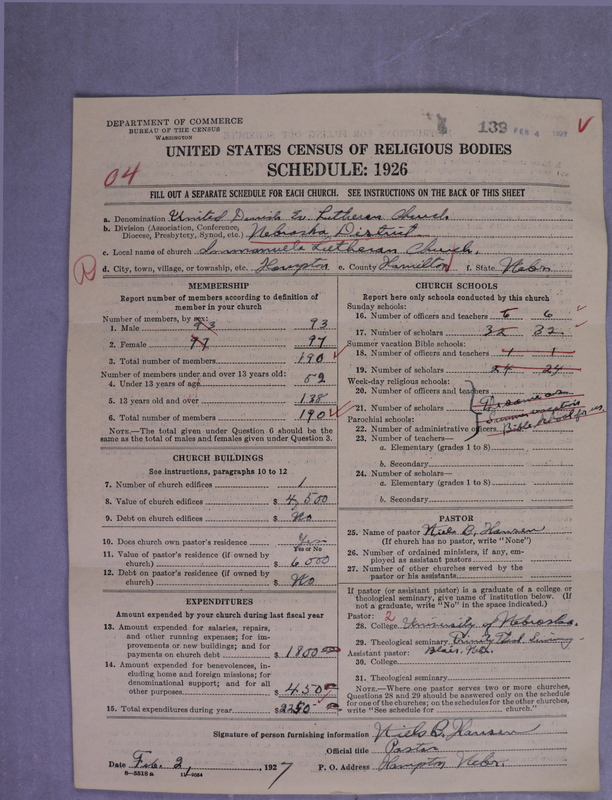 DEPARTMENT OF COMMERCE
BUREAU OF THE CENSUS
WASHINGTON
139 FEB 4 1927
UNITED STATES CENSUS OF RELIGIOUS BODIES
SCHEDULE: 1926
04
FILL OUT A SEPARATE SCHEDULE FOR EACH CHURCH. SEE INSTRUCTIONS ON THE BACK OF THIS SHEET
a. Denomination United Danish Ev. Lutheran Church
b. Division (Association, Conference, Diocese, Presbytery, Synod, etc.) Nebraska District
c. Local name of church Immanuels Lutheran Church.
d. City, town, village, or township, etc. Hampton e. County Hamilton f. State Nebr.
MEMBERSHIP
Report number of members according to definition of member in your church
Number of members, by sex:
1. Male 93 93
2. Female 97 97
3. Total number of members 190
Number of members under and over 13 years old:
4. Under 13 years of age 52
5. 13 years old and over 138
6. Total number of members 190
NOTE.—The total given under Question 6 should be the same as the total of males and females given under Question 3.
CHURCH BUILDINGS
See instructions, paragraphs 10 to 12
7. Number of church edifices 1
8. Value of church edifices $ 4,500
9. Debt on church edifices $ No
10. Does church own pastor's residence? Yes
Yes or No
11. Value of pastor's residence (if owned by church) $ 6000
12. Debt on pastor's residence (if owned by church) $ No
EXPENDITURES
Amount expended by your church during last fiscal year
13. Amount expended for salaries, repairs, and other running expenses; for improvements or new buildings; and for payments on church debt $ 1800
14. Amount expended for benevolences, including home and foreign missions; for denominational support; and for all other purposes $ 450
15. Total expenditures during year $ 2250
CHURCH SCHOOLS
Report here only schools conducted by this church
Sunday schools:
16. Number of officers and teachers 6 6
17. Number of scholars 32 32
Summer vacation Bible schools:
18. Number of officers and teachers 1 1
19. Number of scholars 24 24
Week-day religious schools:
20. Number of officers and teachers
21. Number of scholars
The same as Summer vacation Bible School for us
Parochial schools:
22. Number of administrative officers
23. Number of teachers—
a. Elementary (grades 1 to 8)
b. Secondary
24. Number of scholars—
a. Elementary (grades 1 to 8)
b. Secondary
PASTOR
25. Name of pastor Niels B. Hansen
(If church has no pastor, write "None")
26. Number of ordained ministers, if any, employed as assistant pastors
27. Number of other churches served by the pastor or his assistants
If pastor (or assistant pastor) is a graduate of a college or theological seminary, give name of institution below. (If not a graduate, write "No" in the space indicated.)
Pastor: 2
28. College University of Nebraska.
29. Theological seminary Trinity Theol. Seminary
Assistant pastor: Blair, Nebr.
30. College
31. Theological seminary
NOTE.—Where one pastor serves two or more churches, Questions 28 and 29 should be answered only on the schedule for one of the churches; on the schedules for the other churches, write "See schedule for church."
Signature of person furnishing information Niels B. Hansen
Official title Pastor
Date Feb. 2, 1927 P. O. Address Hampton Nebr.
8-5518 a 11-9054